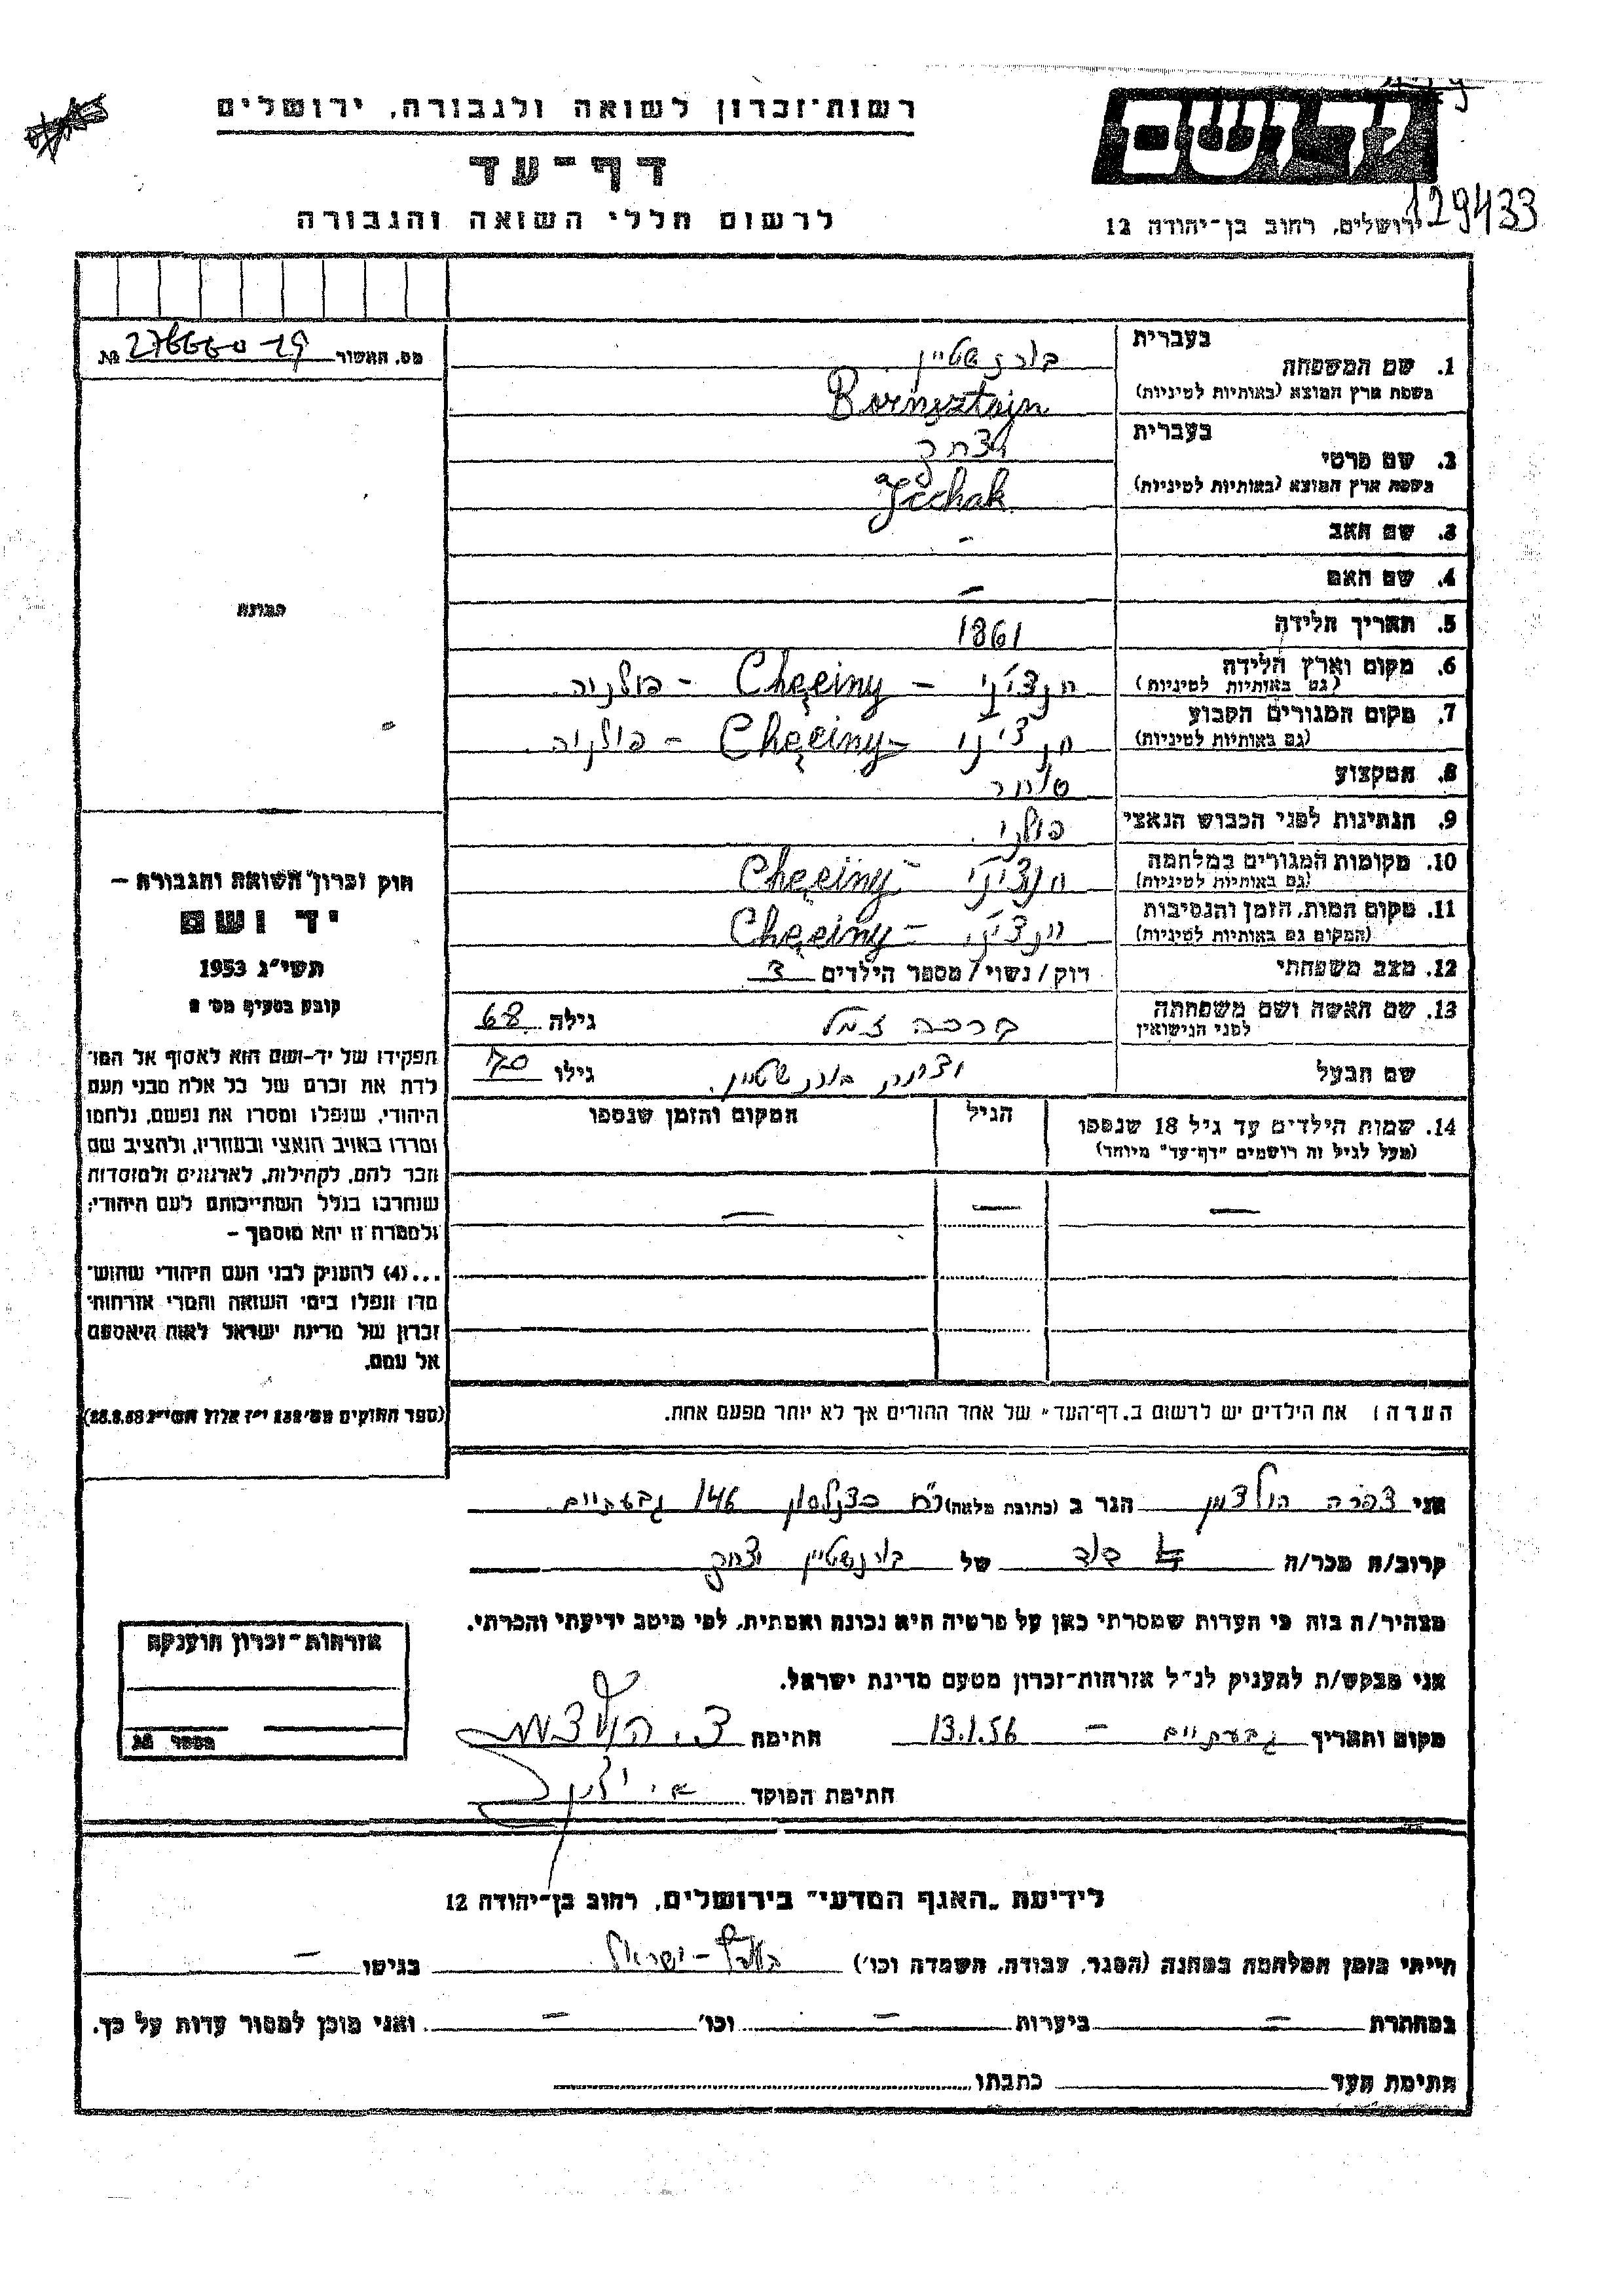 רשות־זכרון לשואה ולגבורה, ירושלים
דף-עד
לרשום חללי השואה והגבורה
יד ושם
129433
ירושלים, רחוב בן-יהודה 12
מס. האשור
№
בעברית
1. שם המשפחה בורנשטיין
בשפת ארץ המוצא (באותיות לטיניות) Bornsztajn
בעברית
2. שם פרטי יצחק
בשפת ארץ המוצא (באותיות לטיניות) Icchak
3. שם האב -
4. שם האם -
5. תאריך הלידה 1861
6. מקום וארץ הלידה חנצ'יני - Chęciny - פולניה
(גם באותיות לטיניות)
7. מקום המגורים הקבוע חנצ'יני - Chęciny - פולניה
(גם באותיות לטיניות)
8. המקצוע סוחר
9. הנתינות לפני הכבוש הנאצי פולני
10. מקומות המגורים במלחמה חנצ'יני - Chęciny
(גם באותיות לטיניות)
11. מקום המות, הזמן והנסיבות חנצ'יני - Chęciny
(המקום גם באותיות לטיניות)
12. מצב משפחתי רוק/נשוי/מספר הילדים 3
13. שם האשה ושם משפחתה ברכה גילה 68
לפני הנישואין
שם הבעל יצחק בורנשטיין גילו 70
14. שמות הילדים עד גיל 18 שנספו הגיל המקום והזמן שנספו
(מעל לגיל זה רושמים "דף-עד" מיוחד)
— — —
הערה: את הילדים יש לרשום ב„דף־העד" של אחד ההורים אך לא יותר מפעם אחת.
תמונה
חוק זכרון השואה והגבורה —
יד ושם
תשי"ג 1953
קובע בסעיף מס' 2
תפקידו של יד-ושם הוא לאסוף אל המו־
לדת את זכרם של כל אלה מבני העם
היהודי, שנפלו ומסרו את נפשם, נלחמו
ומרדו באויב הנאצי ובעוזריו, ולהציב שם
וזכר להם, לקהילות, לארגונים ולמוסדות
שנחרבו בגלל השתייכותם לעם היהודי;
ולמטרה זו יהא מוסמך -
...(4) להעניק לבני העם היהודי שהוש־
מדו ונפלו בימי השואה והמרי אזרחות־
זכרון של מדינת ישראל לאות היאספם
אל עמם.
(ספר החוקים מס' 132 י"ז אלול תשי"ג 28.8.53)
אני צפרה הולצמן הגר ב (כתובת מלאה) רח' כצנלסון 146 גבעתיים
קרוב/ה מכר/ה דוד של בורנשטיין יצחק
מצהיר/ה בזה כי העדות שמסרתי כאן על פרטיה היא נכונה ואמתית, לפי מיטב ידיעתי והכרתי.
אני מבקש/ת להעניק לנ"ל אזרחות־זכרון מטעם מדינת ישראל.
מקום ותאריך גבעתיים - 13.1.56 חתימה צ. הולצמן
חתימת הפוקד
אזרחות־זכרון הוענקה
מספר №
לידיעת „האגף המדעי" בירושלים, רחוב בן־יהודה 12
הייתי בזמן המלחמה במחנה (הסגר, עבודה, השמדה וכו') בארץ-ישראל בגיטו —
במחתרת — ביערות — וכו' — ואני מוכן למסור עדות על כך.
חתימת העד כתבתו